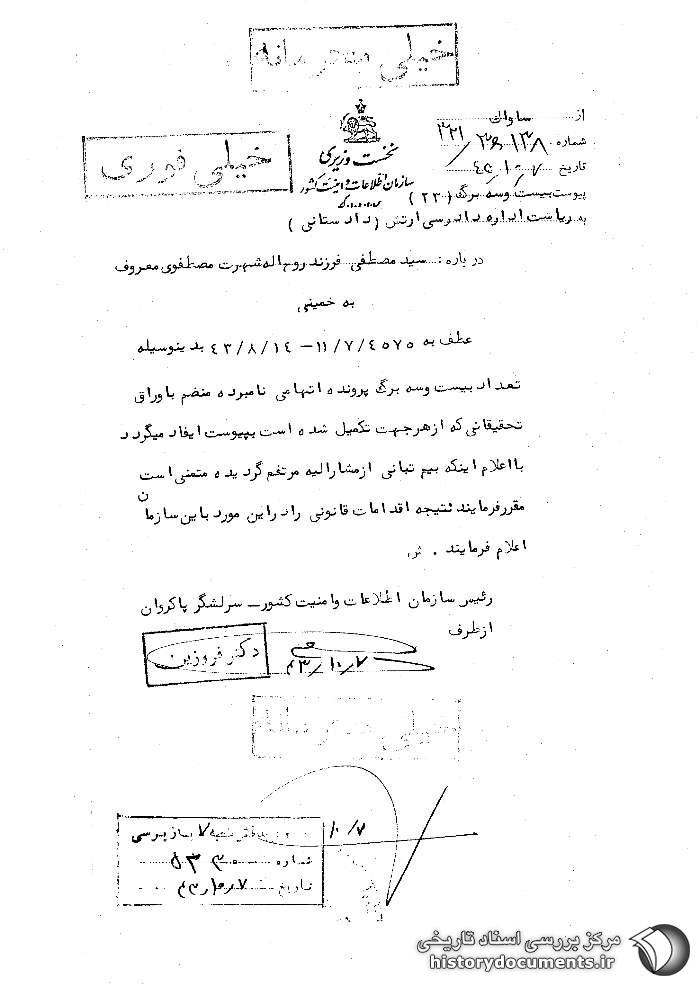 خیلی محرمانه
از ساواک
شماره ۳۶۱۳۸/۳۲۱
تاریخ ۴۳/۱۰/۷
پیوست بیست وسه برگ (۲۳)
نخست وزیری
سازمان اطلاعات و امنیت کشور
س.ا.و.ا.ک
خیلی فوری
به ریاست اداره دادرسی ارتش (دادستانی)
درباره : سید مصطفی فرزند روح اله شهرت مصطفوی معروف
به خمینی
عطف به ۴۵۷۵/۷/۱۱ – ۴۳/۸/۱۴ بدینوسیله
تعداد بیست وسه برگ پرونده اتهامی نامبرده منضم باوراق
تحقیقاتی که ازهرجهت تکمیل شده است بپیوست ایفاد میگردد
بااعلام اینکه بیم تبانی ازمشارالیه مرتفع گردیده متمنی است
مقررفرمایند نتیجه اقدامات قانونی رادراین مورد باین سازمان
اعلام فرمایند .
رئیس سازمان اطلاعات وامنیت کشور – سرلشگر پاکروان
ازطرف
دکتر فروزین
۴۳/۱۰/۷
خیلی محرمانه
۱۰/۷
دفتر شعبه ۷ بازپرسی
شماره
تاریخ ۴۳/۱۰/۷
مرکز بررسی اسناد تاریخی
historydocuments.ir